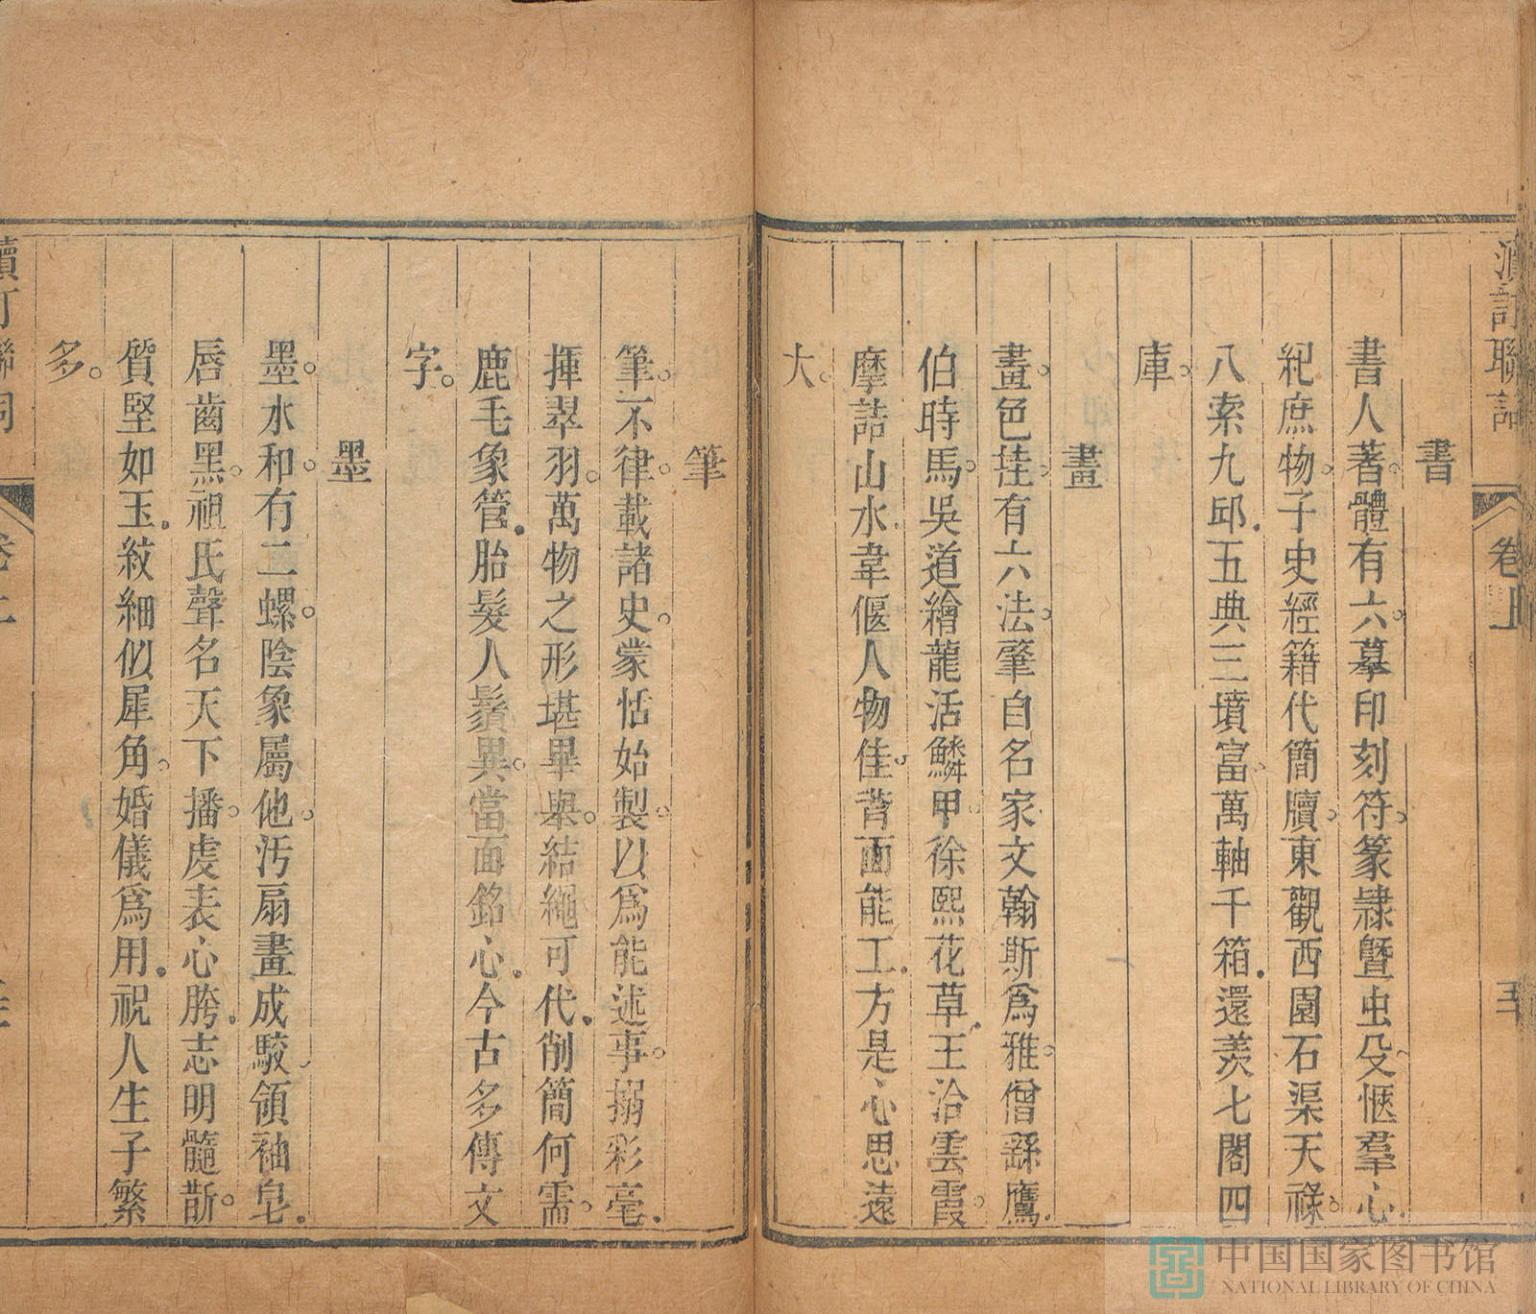 訂聯
卷上
書
書人著體有六摹印刻符篆隸曁虫殳愜羣心
紀庶物子史經籍代簡牘東觀西園石渠天祿
八索九邱五典三墳富萬軸千箱還羡七閣四
庫
畫
畫色挂有六法肇自名家文翰斯爲雅僧繇鷹
伯時馬吳道繪龍活鱗甲徐熙花草王洽雲霞
摩詰山水韋偃人物佳背面能工方是心思遠
大
筆
筆不律載諸史蒙恬始製以爲能述事搦彩毫
揮翠羽萬物之形堪畢舉結繩可代削簡何需
鹿毛象管胎髮人鬚異當面銘心今古多傳文
字
墨
墨水和有二螺陰象屬他汚扇畫成駮領袖皂
唇齒黑祖氏聲名天下播虔表心胯志明髓斮
質堅如玉紋細似犀角婚儀爲用祝人生子繁
多
中国国家图书馆
NATIONAL LIBRARY OF CHINA